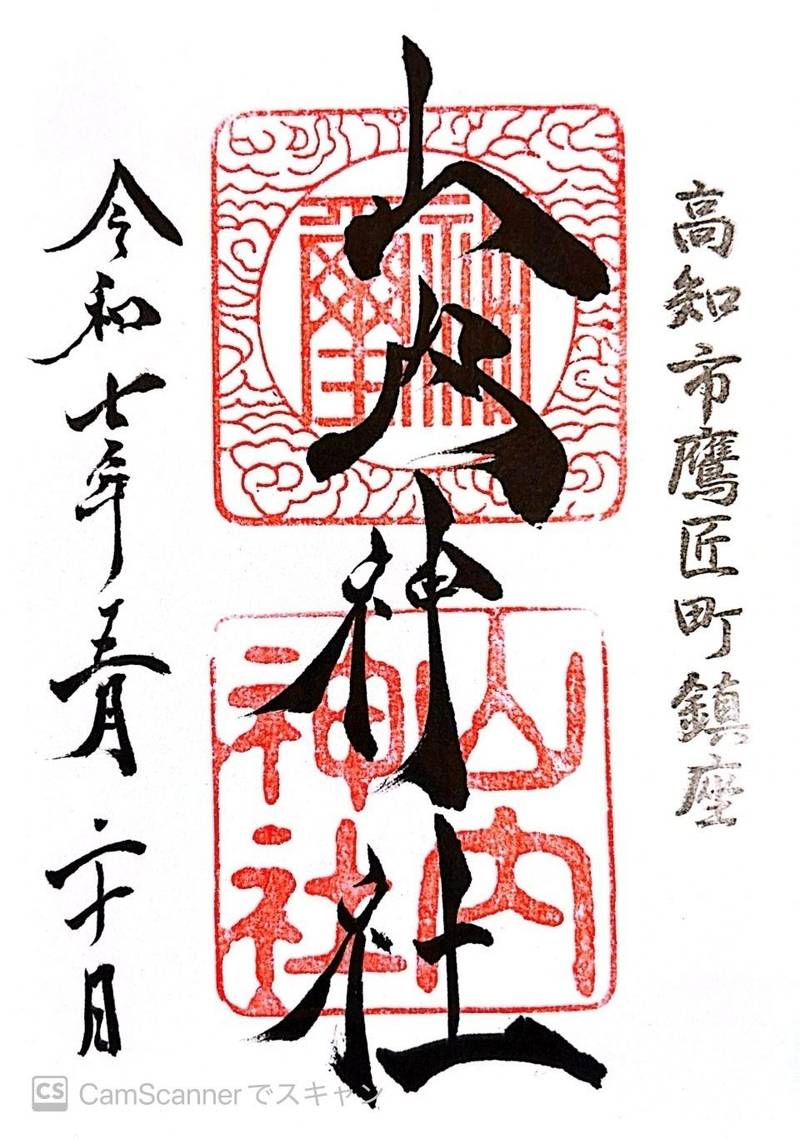 高知市鷹匠町鎮座
山内神社
山内
神社
令和七年五月二十日
CS CamScannerでスキャン